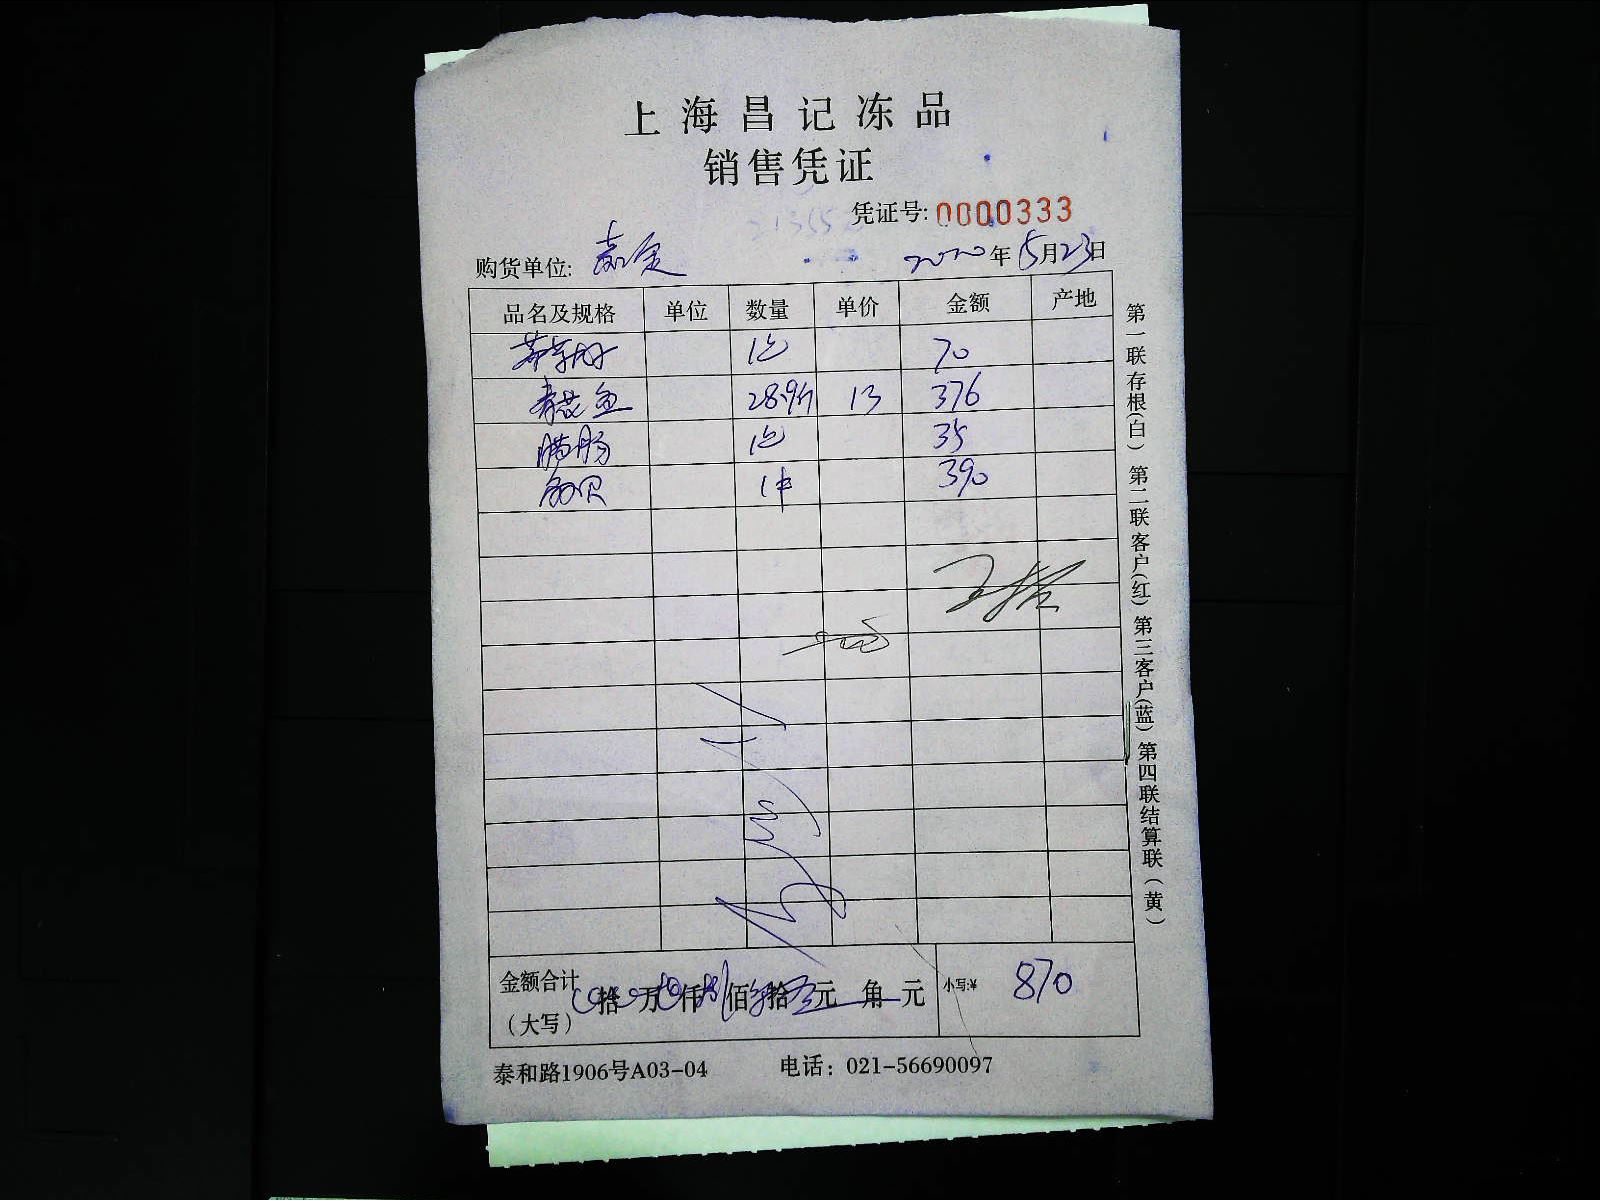 上海昌记冻品
销售凭证
凭证号: 0000333
购货单位: 嘉定 2020年5月23日
品名及规格 单位 数量 单价 金额 产地
1包 70
青花鱼 28.9斤 13 376
腊肠 1包 35
1件 390
金额合计 拾 万 仟 佰 拾 元 角 元 小写:¥ 870
(大写)
泰和路1906号A03-04 电话: 021-56690097
第一联存根(白) 第二联客户(红) 第三客户(蓝) 第四联结算联(黄)